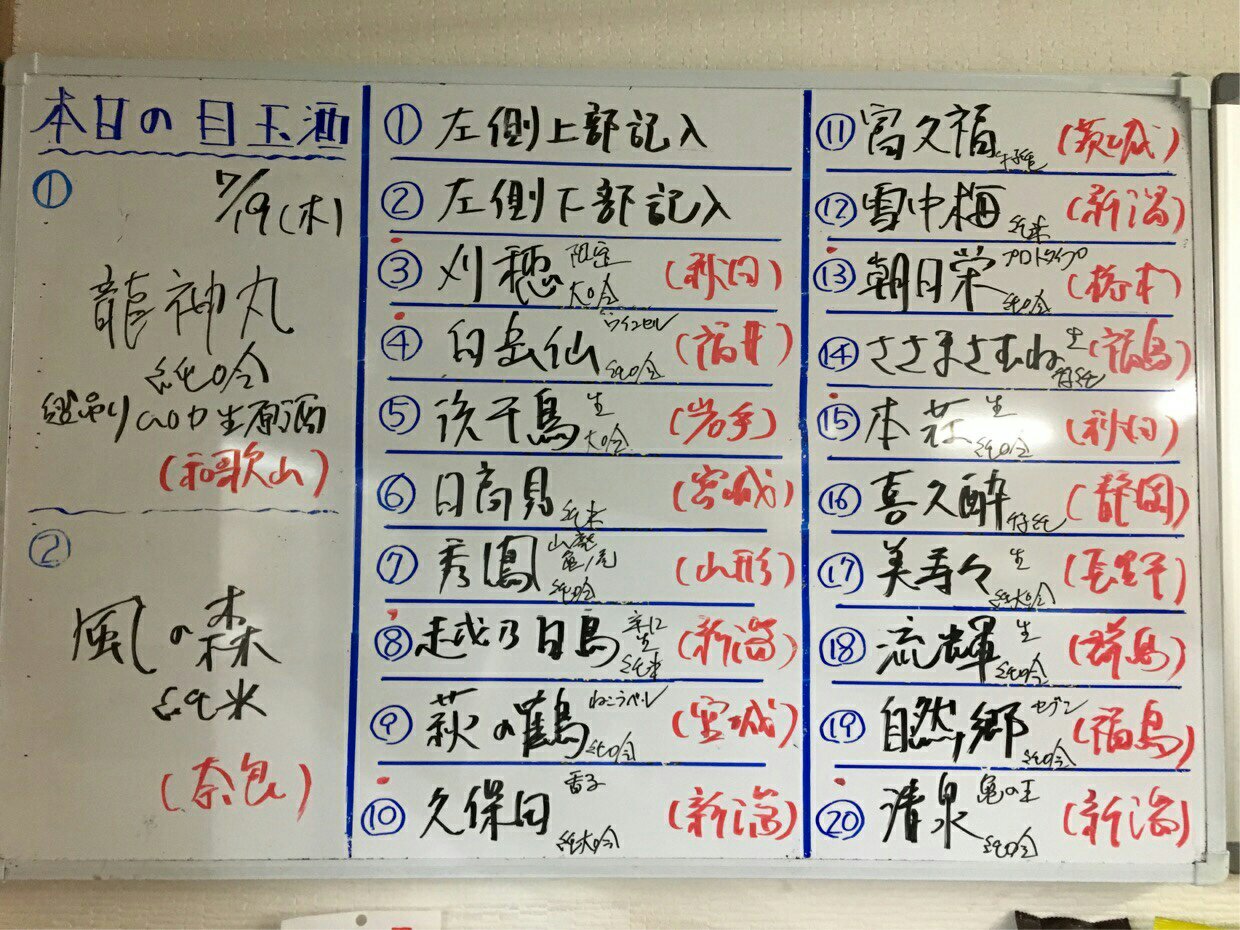 本日の目玉酒
①
7/19(木)
龍神丸
純吟
袋吊り 生原酒
(和歌山)
②
風の森
純米
(奈良)
① 左側上部記入
② 左側下部記入
③ 刈穂 大吟 (秋田)
④ 白岳仙 純吟 (福井)
⑤ 浜千鳥 生 大吟 (岩手)
⑥ 日高見 純米 (宮城)
⑦ 秀鳳 山廃 亀ノ尾 純吟 (山形)
⑧ 越乃白鳥 辛口 生 純米 (新潟)
⑨ 萩の鶴 ねこラベル 純吟 (宮城)
⑩ 久保田 香子 純大吟 (新潟)
⑪ 富久福 (茨城)
⑫ 雪中梅 純米 (新潟)
⑬ 朝日栄 プロトタイプ 純吟 (栃木)
⑭ ささまさむね 生 特純 (福島)
⑮ 本荘 生 純吟 (秋田)
⑯ 喜久酔 特純 (静岡)
⑰ 美寿々 生 純大吟 (長野)
⑱ 流輝 生 純吟 (群馬)
⑲ 自然郷 セブン 純吟 (福島)
⑳ 清泉 亀の王 純吟 (新潟)